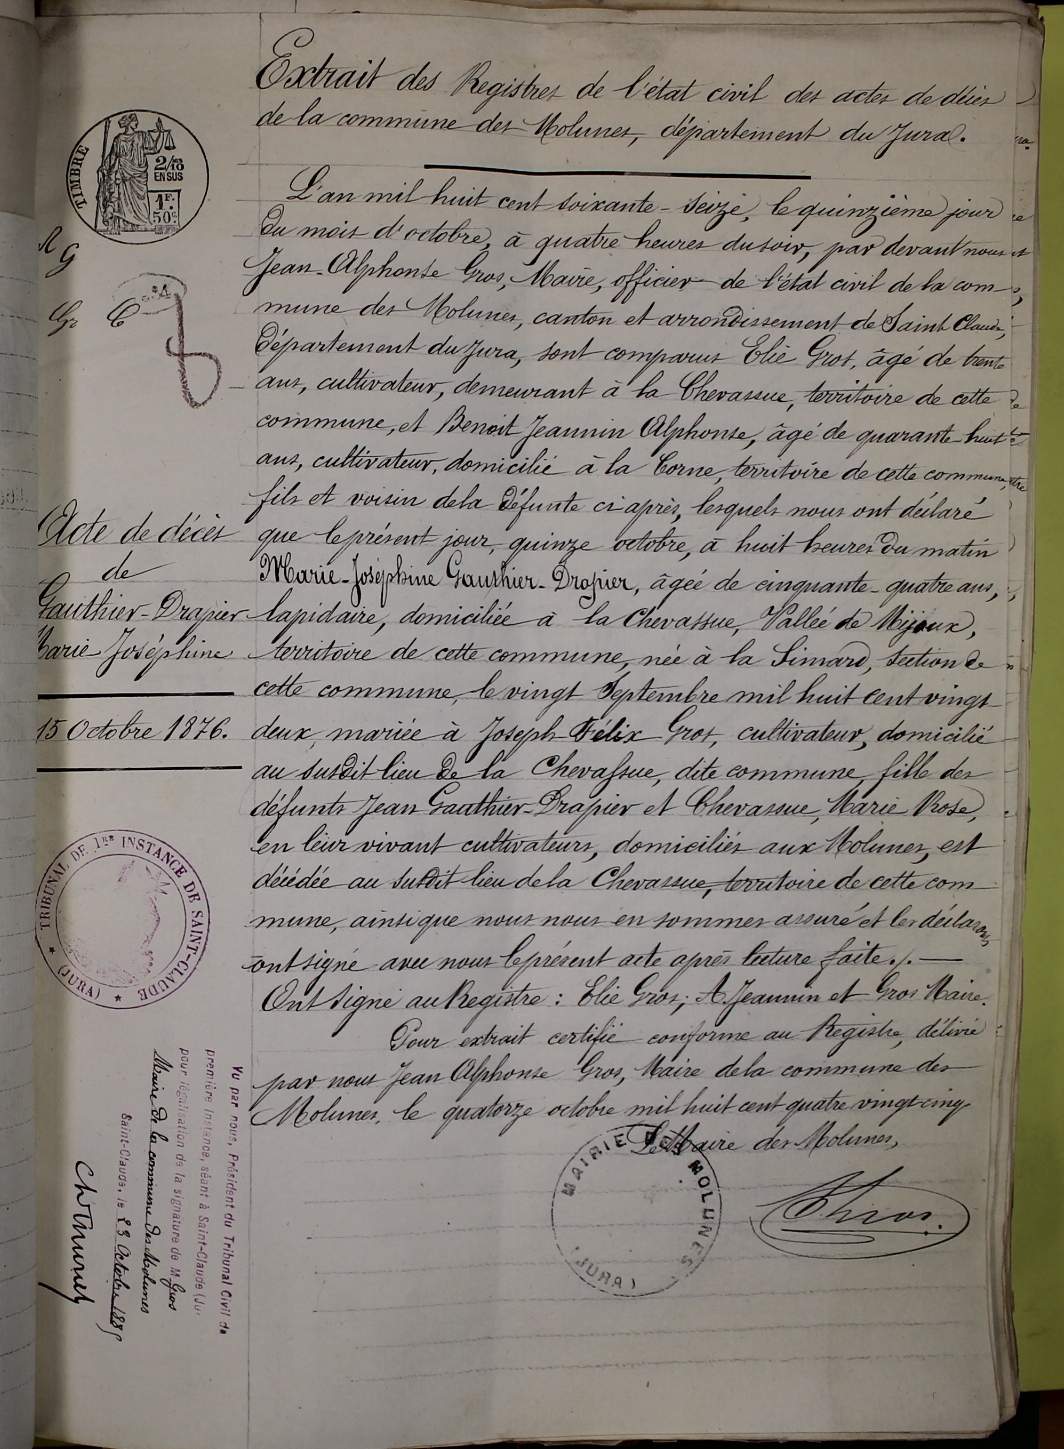 Extrait des Registres de l'état civil des actes de décès
de la commune des Molunes, département du Jura.
TIMBRE
2/10
EN SUS
1F.
50c
L'an mil huit cent soixante-seize, le quinzième jour
du mois d'octobre, à quatre heures du soir, par devant nous
Jean-Alphonse Gros, Maire, officier de l'état civil de la com-
mune des Molunes, canton et arrondissement de Saint Claude,
département du Jura, sont comparus Elie Gros, âgé de trente
ans, cultivateur, demeurant à la Chevassue, territoire de cette
commune, et Benoit Jeannin Alphonse, âgé de quarante-huit
ans, cultivateur, domicilié à la Corne, territoire de cette commune,
fils et voisin de la défunte ci après, lesquels nous ont déclaré
que le présent jour, quinze octobre, à huit heures du matin
Marie-Joséphine Gauthier-Drapier, âgée de cinquante-quatre ans,
lapidaire, domiciliée à la Chevassue, Vallée de Mijoux,
territoire de cette commune, née à la Simard, section de
cette commune, le vingt Septembre mil huit cent vingt-
deux, mariée à Joseph Félix Gros, cultivateur, domicilié
au susdit lieu de la Chevassue, dite commune, fille des
défunts Jean Gauthier-Drapier et Chevassue, Marie Rose,
en leur vivant cultivateurs, domiciliés aux Molunes, est
décédée au susdit lieu de la Chevassue, territoire de cette com-
mune, ainsi que nous nous en sommes assuré et les déclarans
ont signé avec nous le présent acte après lecture faite ./. —
Ont Signé au Registre : Elie Gros; A Jeannin et Gros Maire.
Pour extrait certifié conforme au Registre, délivré
par nous Jean Alphonse Gros, Maire de la commune des
Molunes, le quatorze octobre mil huit cent quatre vingt-cinq
Le Maire des Molunes,
Gros.
MAIRIE DES MOLUNES
(JURA)
Acte de décès
de
Gauthier-Drapier
Marie Joséphine
15 Octobre 1876.
TRIBUNAL DE 1RE INSTANCE DE SAINT-CLAUDE
(JURA)
Vu par nous, Président du Tribunal Civil de
première instance, séant à Saint-Claude (Ju
pour légalisation de la signature de M Gros
Maire de la commune des Molunes
Saint-Claude, le 23 Octobre 1885